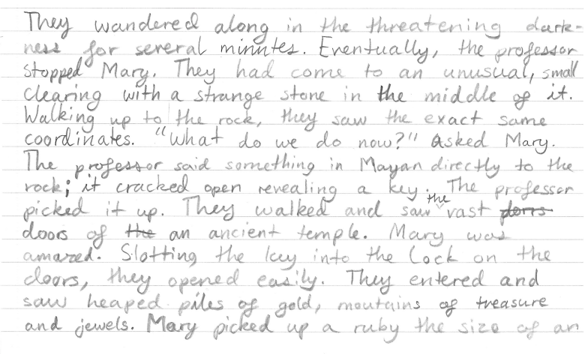 They wandered along in the threatening dark-
ness for several minutes. Eventually, the professor
stopped Mary. They had come to an unusual, small
clearing with a strange stone in the middle of it.
Walking up to the rock, they saw the exact same
coordinates. "What do we do now?" asked Mary.
The professor said something in Mayan directly to the
rock; it cracked open revealing a key. The professor
picked it up. They walked and saw the vast doors
doors of the an ancient temple. Mary was
amazed. Slotting the key into the lock on the
doors, they opened easily. They entered and
saw heaped piles of gold, moutains of treasure
and jewels. Mary picked up a ruby the size of an